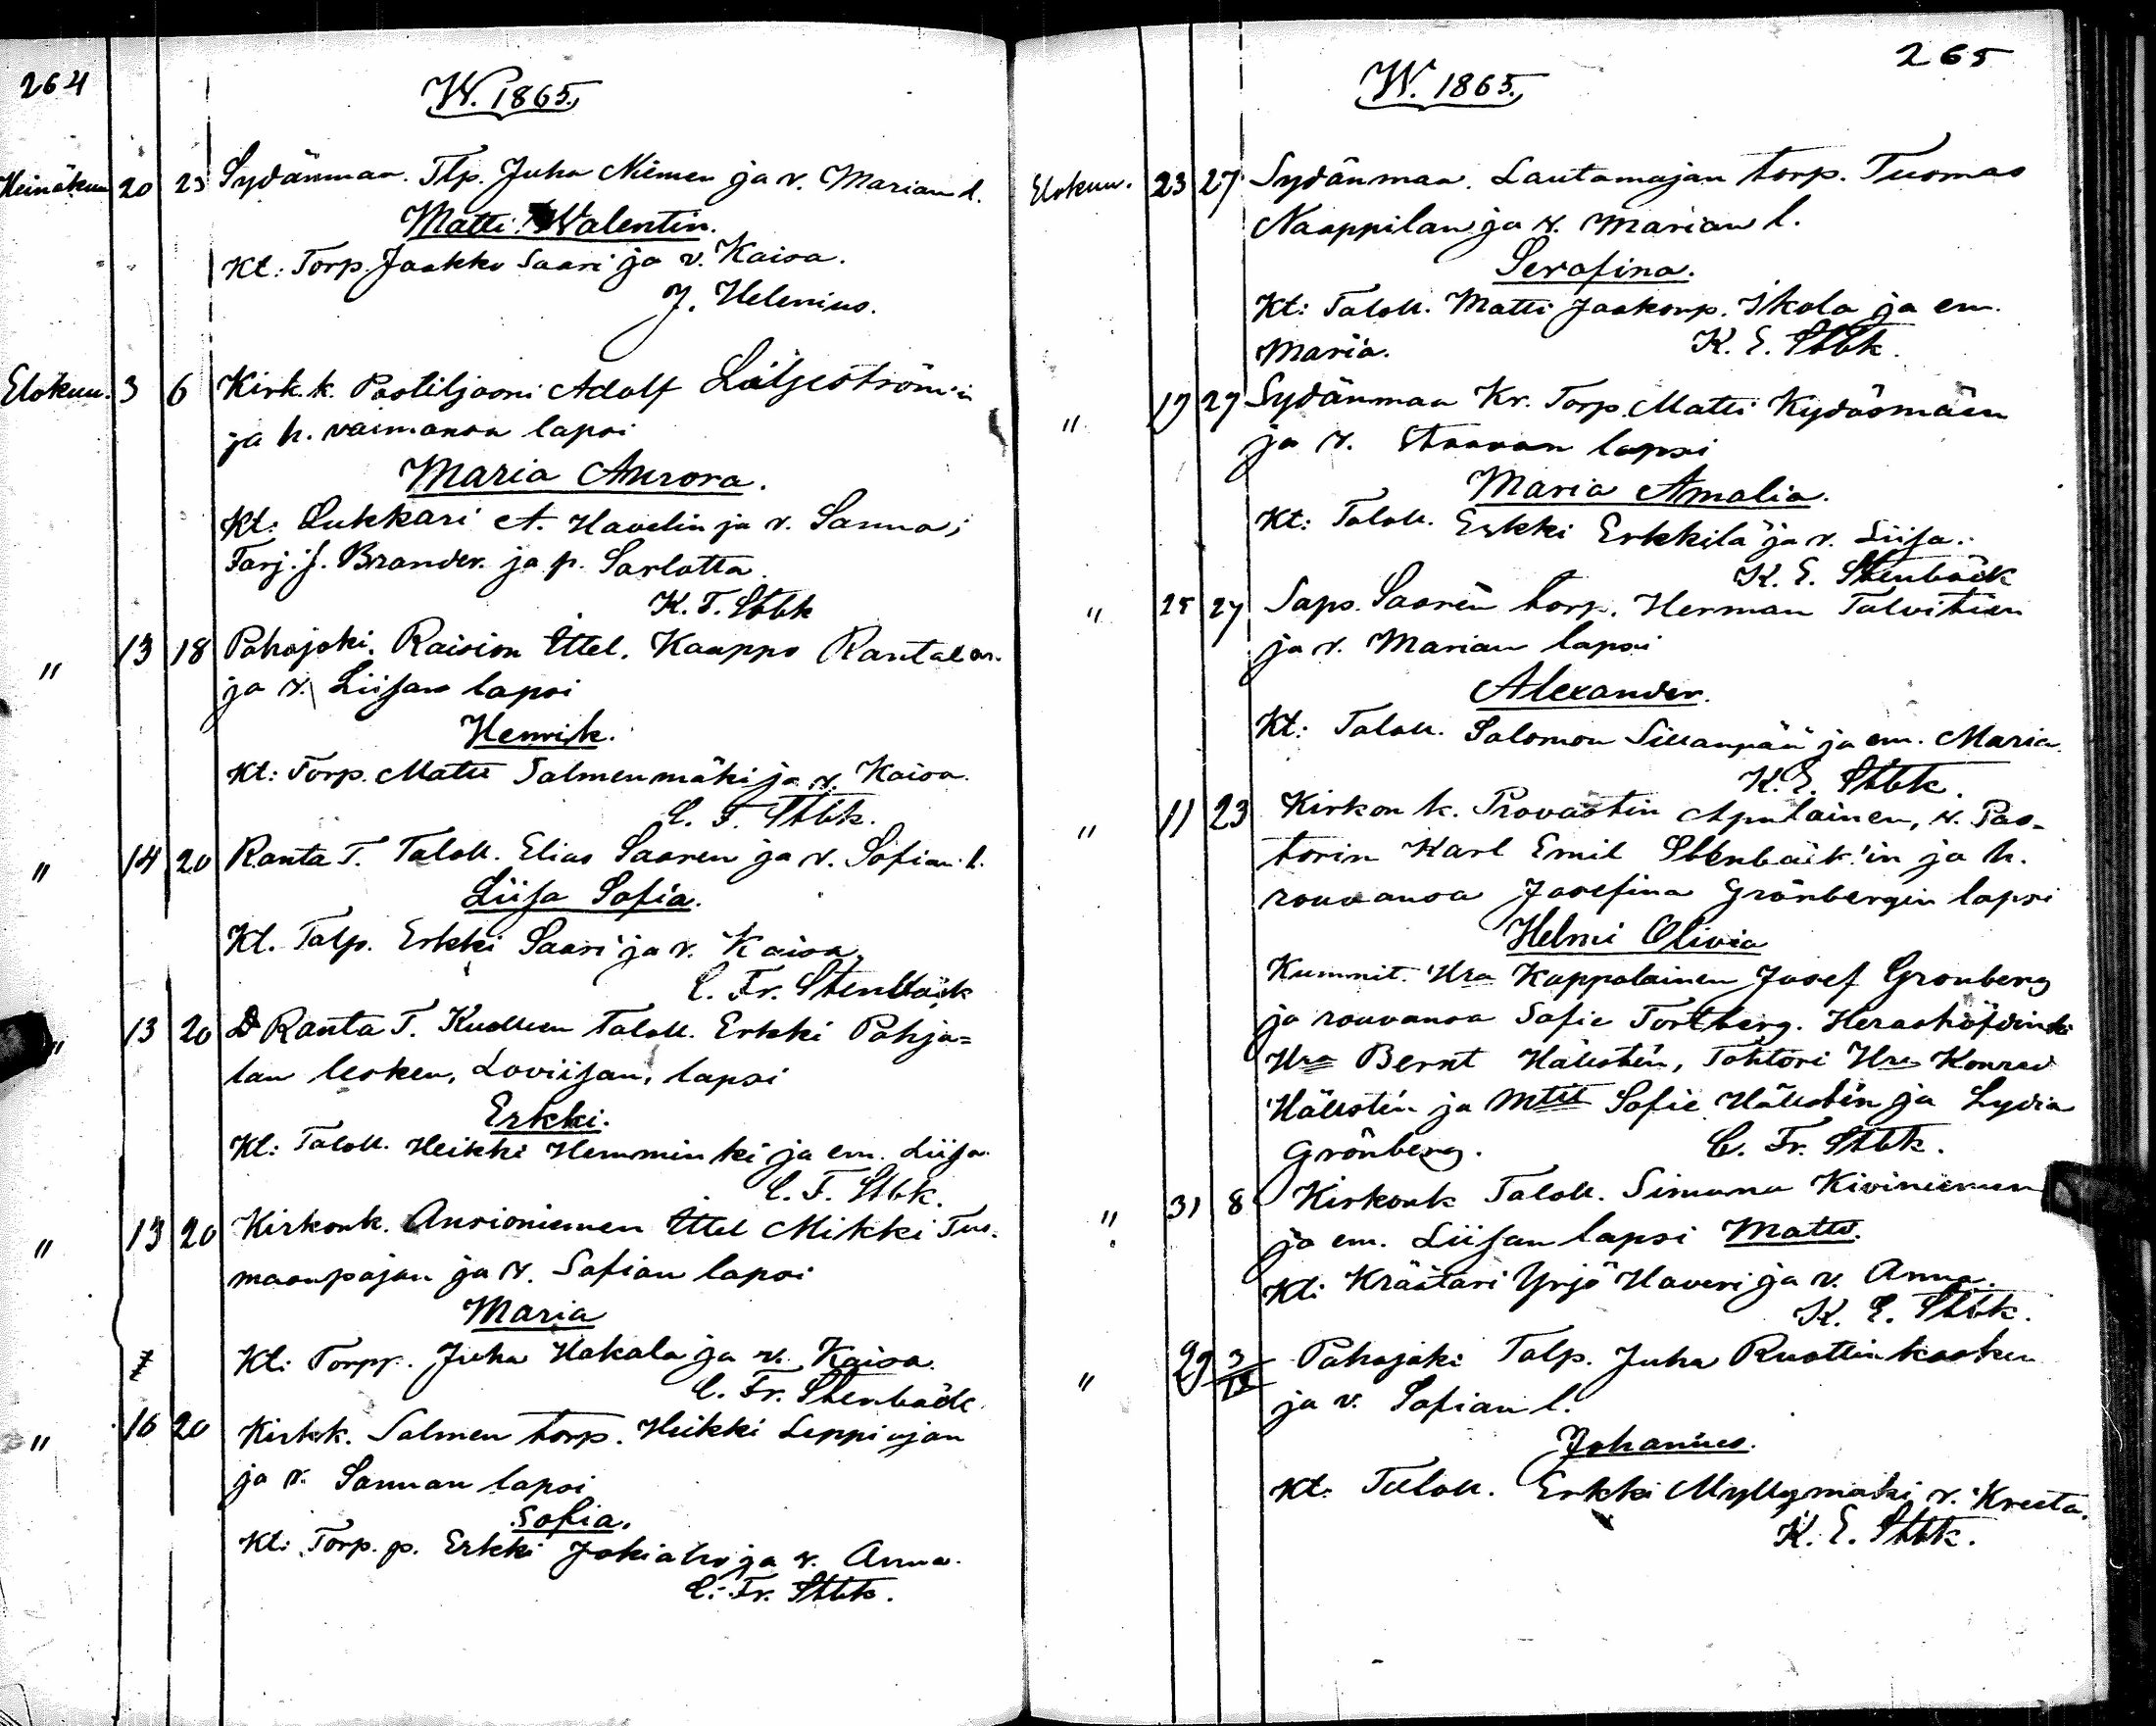 264
W. 1865.
Heinäkuu 20 23 Sydänmaa. Tlp. Juha Niemen ja v. Marian l.
Matti Walentin.
Kt: Torp. Jaakko Saari ja v. Kaisa.
J. Helenius.
Elokuu. 3 6 Kirk. k. Postiljooni Adolf Liljeström'in
ja h. vaimonsa lapsi
Maria Aurora.
Kt: Lukkari A. Havelin ja v. Sanna;
Farj. J. Brander. ja p. Sarlotta.
K. F. Stbk
" 13 18 Pohojoki. Raision Ittel. Kaappo Rantalan.
ja v. Liisan lapsi
Henrik.
Kt: Torp. Matti Salmenmäki ja v. Kaisa.
C. F. Stbk.
" 14 20 Ranta T. Taloll. Elias Saaren ja v. Sofian l.
Liisa Sofia.
Kt. Talp. Erkki Saari ja v. Kaisa.
C. Fr. Stenbäck
" 13 20 Ranta T. Kuolleen Taloll. Erkki Pohja=
lan lesken, Loviisan, lapsi
Erkki.
Kt: Taloll. Heikki Hemminki ja em. Liisa.
C. F. Stbk.
" 13 20 Kirkonk. Ansioniemen Ittel Mikki Tuo-
maanpajan ja v. Sofian lapsi
Maria
Kt: Torpp. Juha Hakala ja v. Kaisa.
C. Fr. Stenbäck.
" 16 20 Kirkk. Salmen torp. Heikki Leppiojan
ja v. Sannan lapsi
Sofia.
Kt: Torp. p. Erkki Jokiaho ja v. Anna.
C. Fr. Stbk.
265
W. 1865.
Elokuu. 23 27 Sydänmaa. Lautamajan torp. Tuomas
Naappilan ja v. Marian l.
Serafina.
Kt: Taloll. Matti Jaakonp. Ikola ja em.
Maria. K. E. Stbk.
" 19 27 Sydänmaa Kr. Torp. Matti Kydösmäen
ja v. Staavan lapsi
Maria Amalia.
Kt: Taloll. Erkki Erkkilä ja v. Liisa.
K. E. Stenbäck
" 25 27 Saps. Saaren torp. Herman Talvitien
ja v. Marian lapsi
Alexander.
Kt: Taloll. Salomon Sillanpää ja em. Maria.
K. E. Stbk.
" 11 23 Kirkon k. Provastin Apulainen, v. Pas-
torin Karl Emil Stenbäck'in ja h.
rouvansa Josefina Grönbergin lapsi
Helmi Olivia
Kummit. Hra Kappalainen Josef Gronberg
ja rouvansa Sofie Fortberg. Herashöfdinki
Hra Bernt Hällstén, Tohtori Hra Konrad
Hällstén ja Mtt Sofie Hällstén ja Lydia
Grönberg. C. Fr. Stbk.
" 31 8 Kirkonk Taloll. Simuna Kiviniemen
ja em. Liisan lapsi Matti.
Kt: Kräätari Yrjö Haveri ja v. Anna.
K. E. Stbk.
" 29 3/IX Pohojoki Talp. Juha Ruottinkosken
ja v. Sofian l.
Johannes.
Kt. Taloll. Erkki Myllymäki v. Kreeta.
K. E. Stbk.